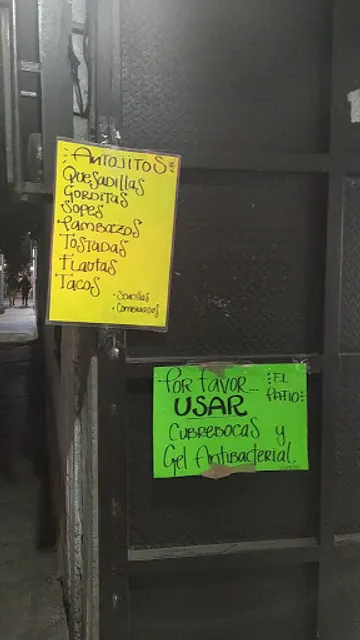 ANTOJITOS
QUESADILLAS
GORDITAS
SOPES
PAMBAZOS
TOSTADAS
FLAUTAS
TACOS
• SENCILLAS
• COMBINADOS
POR FAVOR...
EL PATIO
USAR
CUBREBOCAS y
Gel Antibacterial.